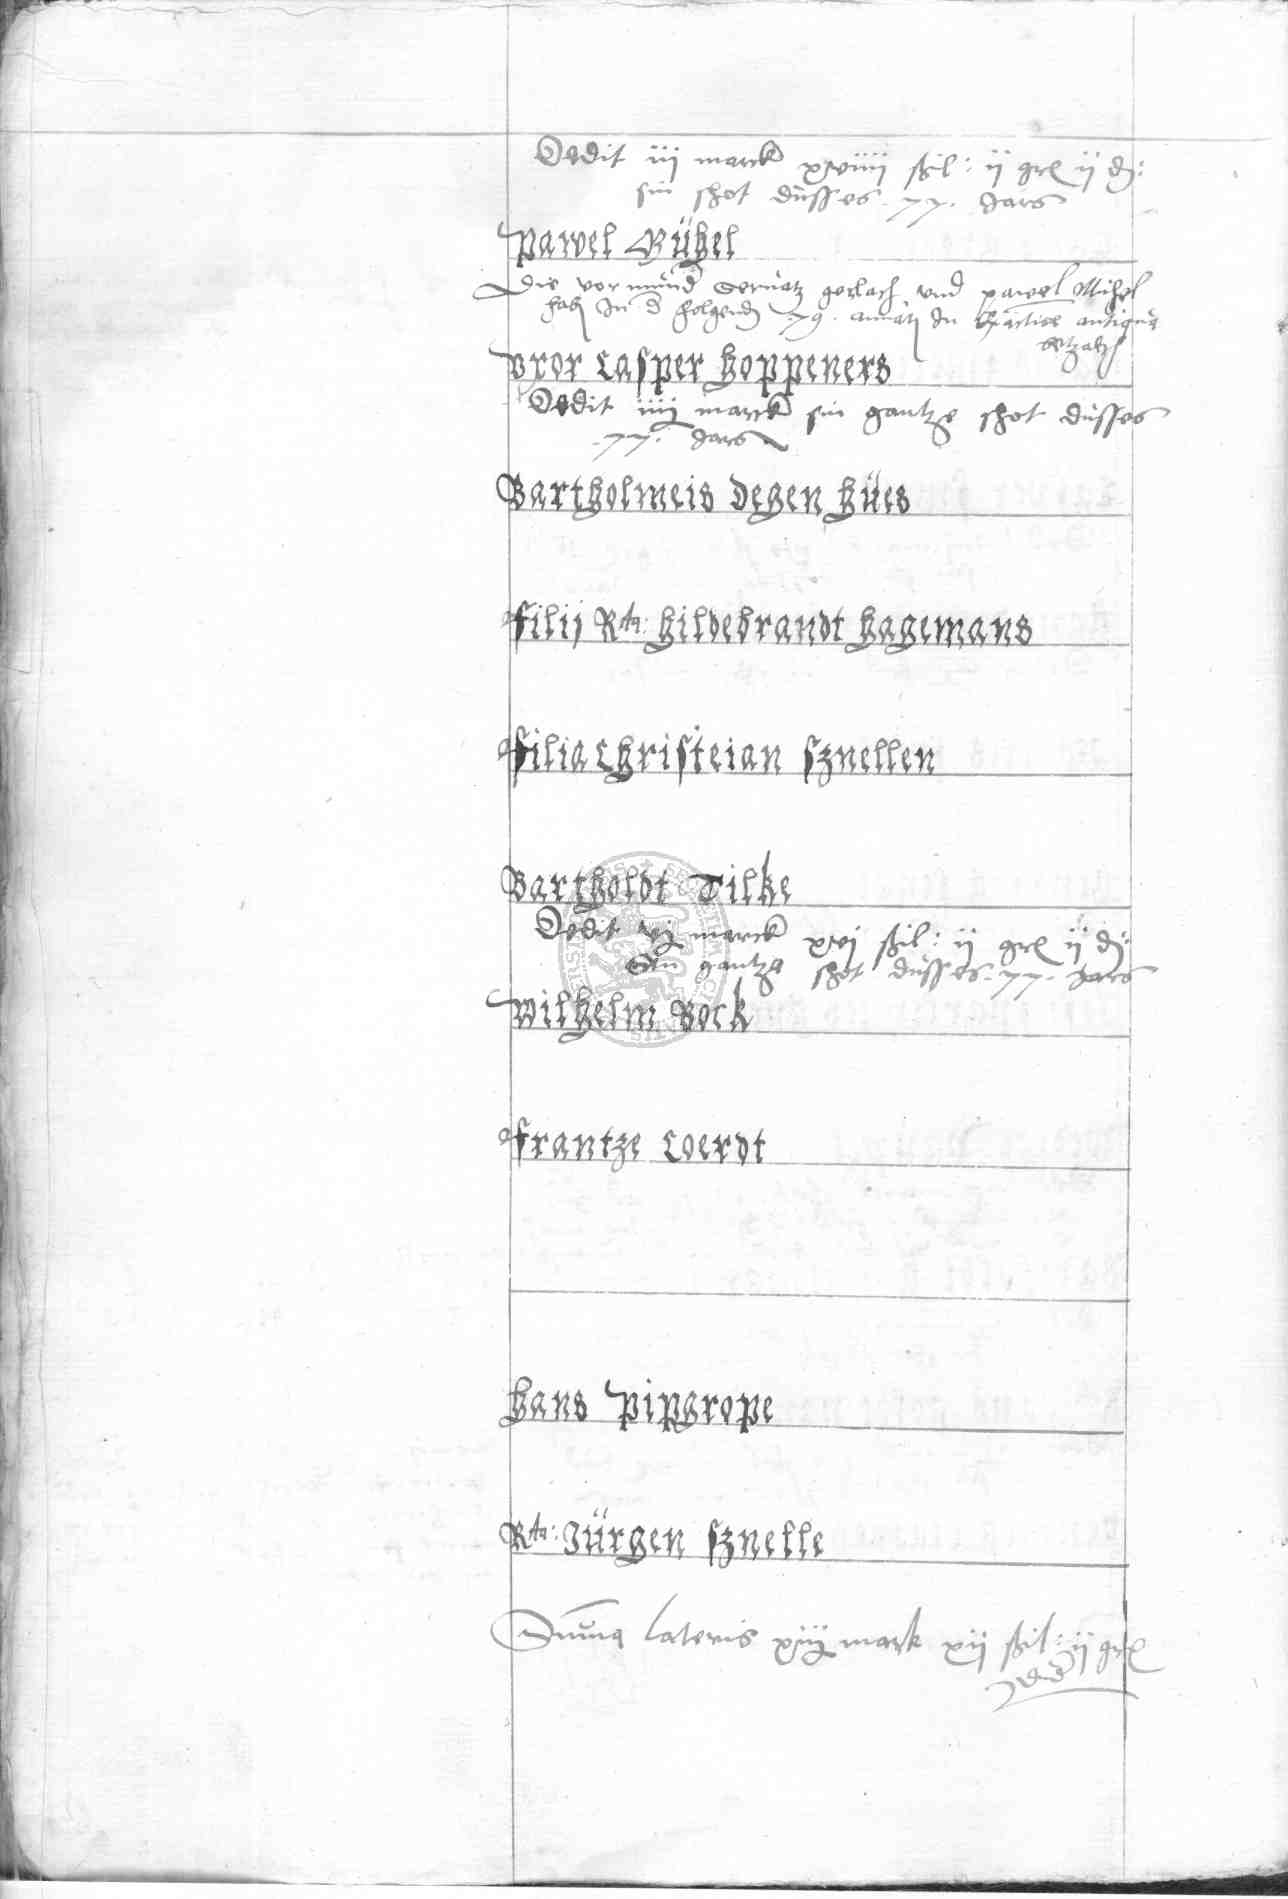 Dedit iij marck xviiij ßil: ij gr ij d:
sin shot düsses .77. Jars
Pawel Bühel
Die vormünd Servatz gerlach und pawel Mihel
hab In d folgend .79. annatz In practice antiqua
betzalt
Vxor Casper Hoppeners
Dedit iiij marck sin gantze shot düsses
.77. Jars
Bartholmeis Degen Hües
Filij Rtn: Hildebrandt Hagemans
Filia Christeian Sznellen
Bartholdt Tilke
Dedit vj marck xvj ßil: ij gr ij d:
Sin gantze shot düsses .77. Jars
Wilhelm Bock
Frantze Coerdt
Hans Pipgrope
Rtn: Jürgen Sznelle
Summa lateris xiij mark xij ßil: ij gr